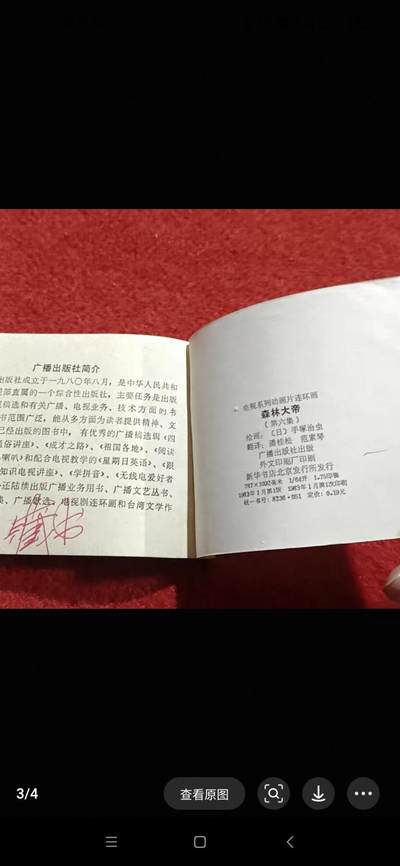 广播出版社简介
出版社成立于一九八〇年八月，是中华人民共和
部直属的一个综合性出版社，主要任务是出版
稿选和有关广播、电视业务、技术方面的书
书范围广泛，能从多方面为读者提供精神、文
已经出版的图书中，有优秀的广播稿选辑《四
俗讲座》、《成才之路》、《祖国各地》、《阅读
喇叭》和配合电视教学的《星期日英语》、《跟
知识电视讲座》、《学拼音》、《无线电爱好者
还陆续出版广播业务用书、广播文艺丛书、
电视剧连环画和台湾文学作
电视系列动画片连环画
森林大帝
（第六集）
绘画：〔日〕手塚治虫
翻译：潘桂松 范素琴
广播出版社出版
外文印刷厂印刷
新华书店北京发行所发行
787×1092毫米 1/64开 1.75印张
1983年1月第1版 1983年1月第1次印刷
统一书号：8236·051 定价：0.19元
3/4
查看原图